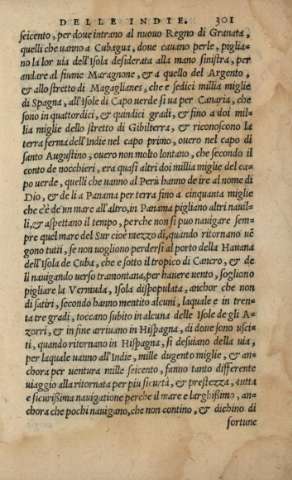 DELLE INDIE. 301
seicento, per doue intrano al nuouo Regno di Granata,
quelli che uanno a Cubagua, doue cauano perle, piglia-
no la lor uia dell'Isola desiderata alla mano sinistra, per
andare al fiume Maragnone, & a quello del Argento,
& allo stretto di Magaglianes, che e sedici millia miglie
di Spagna, all'Isole di Capo uerde si ua per Canaria, che
sono in quattordici, & quindici gradi, & fino a doi mil-
lia miglie dello stretto di Gibilterra, & riconoscono la
terra ferma dell'Indie nel capo primo, ouero nel capo di
santo Augustino, ouero non molto lontano, che secondo il
conto de nocchieri, era quasi altri doi millia miglie del ca
po uerde, quelli che uanno al Perù hanno de ire al nome di
Dio, & de li a Panama per terra fino a cinquanta miglie
che c'è de un mare all'altro, in Panama pigliano altri nauil-
li, & aspettano il tempo, perche non si puo nauigare sem-
pre quel mare del Sur cioè mezzo dì, quando ritornano uē
gono tutti, se non uogliono perdersi al porto della Hauana
dell'Isola de Cuba, che e sotto il tropico di Cancro, & de
li nauigando uerso tramontana, per hauere uento, sogliono
pigliare la Vermuda, Isola dispopulata, anchor che non
di satiri, secondo hanno mentito alcuni, laquale e in tren-
ta tre gradi, toccano subito in alcuna delle Isole degli A-
zorri, & in fine arriuano in Hispagna, di doue sono usci-
ti, quando ritornano in Hispagna, si desuiano della uia,
per laquale uanno all'Indie, mille dugento miglie, & an-
chora per uentura mille seicento, fanno tanto differente
uiaggio alla ritornata per piu sicurtà, & prestezza, tutta
e sicurissima nauigatione perche il mare e larghissimo, an-
chora che pochi nauigano, che non contino, & dichino di
fortune